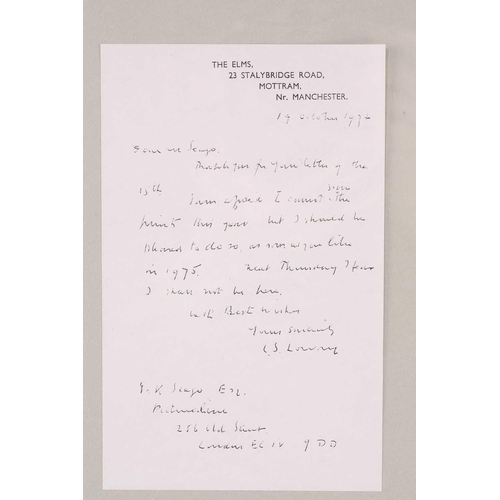 THE ELMS,
23 STALYBRIDGE ROAD,
MOTTRAM,
Nr. MANCHESTER.
19 October 1974
Dear Mr Seago.
Thank you for your letter of the
13th. I am afraid I cannot sign the
prints this year but I should be
pleased to do so, as soon as you like
in 1975. Next Thursday I fear
I shall not be here.
with Best wishes
Yours sincerely
L.S. Lowry
Seago Esq.
256 Old Street
London EC1V 9DD